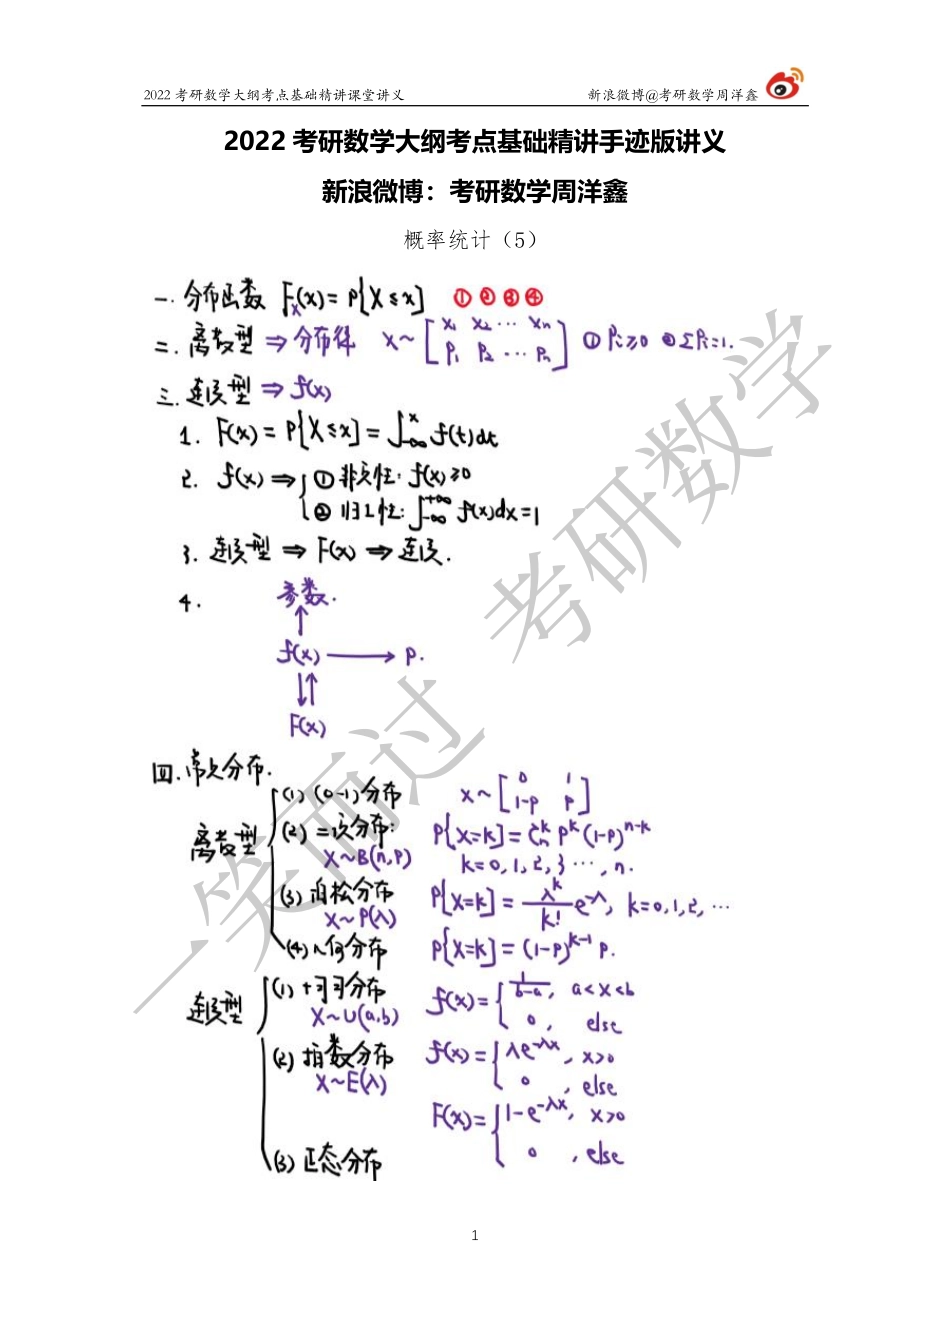 2022 考研数学大纲考点基础精讲课堂讲义 新浪微博@考研数学周洋鑫
2022 考研数学大纲考点基础精讲手迹版讲义
新浪微博：考研数学周洋鑫
概率统计（5）
一. 分布函数 F_X(x)=P{X≤x} ① ② ③ ④
二. 离散型 ⇒ 分布律 X~[x₁ x₂ ⋯ xₙ
P₁ P₂ ⋯ Pₙ] ① Pᵢ≥0 ② ΣPᵢ=1.
三. 连续型 ⇒ f(x)
1. F(x)=P{X≤x}=∫_{-∞}^{x} f(t)dt
2. f(x) ⇒ { ① 非负性: f(x)≥0
② 归一性: ∫_{-∞}^{+∞} f(x)dx=1
3. 连续型 ⇒ F(x) ⇒ 连续.
4. 参数.
↑
f(x) ⟶ P.
↓↑
F(x)
四. 常见分布.
离散型 { (1) (0-1)分布 X~[0 1
1-p p]
(2) 二项分布: P{X=k}=Cₙᵏ pᵏ(1-p)ⁿ⁻ᵏ
X~B(n,p) k=0,1,2,3 ⋯, n.
(3) 泊松分布 P{X=k}=λᵏ/k! e^{-λ}, k=0,1,2, ⋯
X~P(λ)
(4) 几何分布 P{X=k}=(1-p)^{k-1} p.
连续型 { (1) 均匀分布 f(x)={ 1/(b-a), a<x<b
X~U(a,b) 0, else
(2) 指数分布 f(x)={ λe^{-λx}, x>0
X~E(λ) 0, else
F(x)={ 1-e^{-λx}, x>0
0, else
(3) 正态分布
一笑而过 考研数学
1